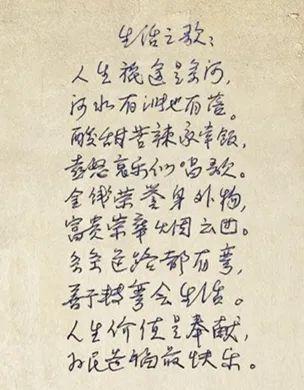 生活之歌：
人生旅途是条河，
河水有湍也有萦。
酸甜苦辣家常饭，
喜怒哀乐们唱歌。
金钱荣誉身外物，
富贵荣华烟云过。
条条道路都有弯，
善于转弯会生活。
人生价值是奉献，
为民造福最快乐。